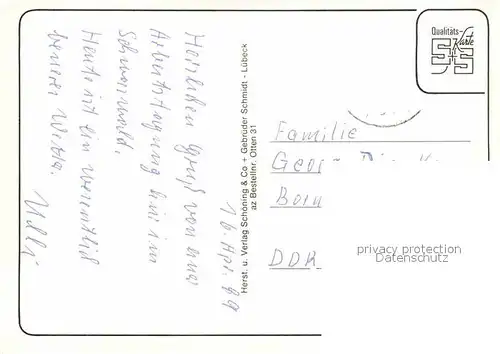 16. Apr. 89
Herzlichen Gruß von einer
Arbeitstagung hier im
Schwarzwald.
Heute ist ein wesentlich
besseres Wetter.
Willy
Herst. u. Verlag Schöning & Co + Gebrüder Schmidt - Lübeck
az Bestellnr. Otten 31
Qualitäts-
Karte
S+S
Familie
Georg
DDR
privacy protection
Datenschutz